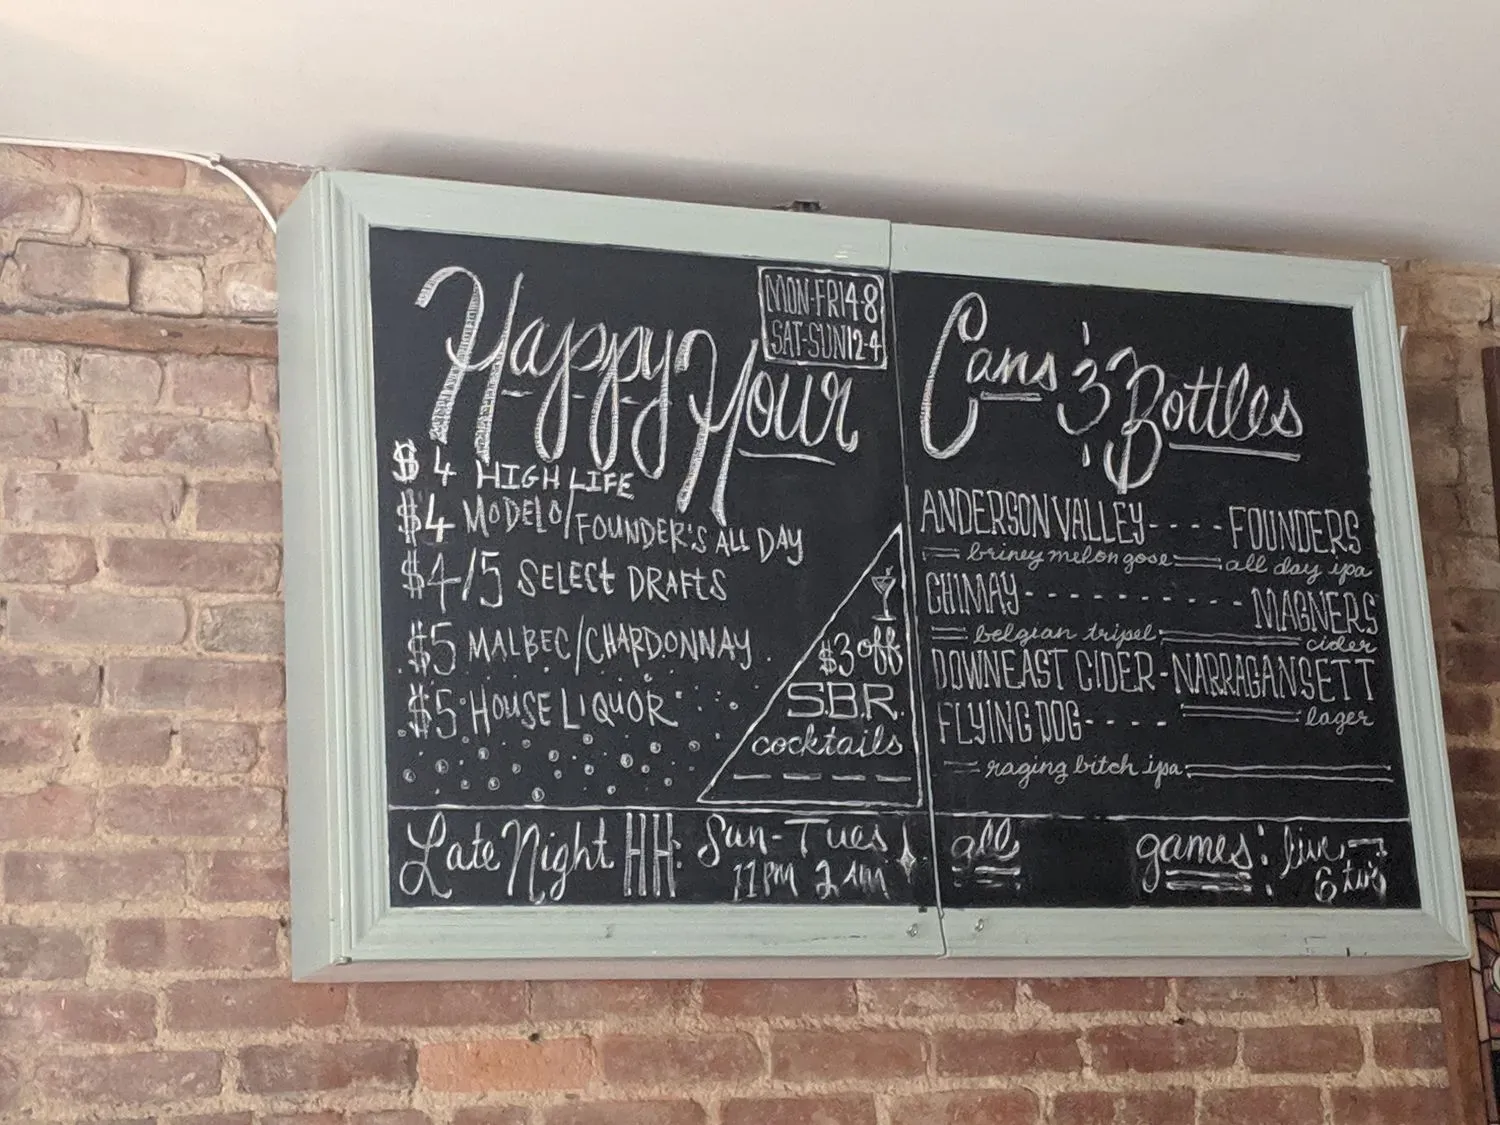 Happy Hour
MON-FRI 4-8
SAT-SUN 12-4
$4 HIGH LIFE
$4 MODELO/FOUNDER'S ALL DAY
$4/5 SELECT DRAFTS
$5 MALBEC/CHARDONNAY
$5 HOUSE LIQUOR
$3 off
S.B.R.
cocktails
Late Night HH: Sun-Tues
11PM 2AM
Cans & Bottles
ANDERSON VALLEY - - - - FOUNDERS
briney melon gose all day ipa
CHIMAY - - - - - - - - - - - MAGNERS
belgian tripel cider
DOWNEAST CIDER - NARRAGANSETT
lager
FLYING DOG - - - - -
raging bitch ipa
all games: live
6